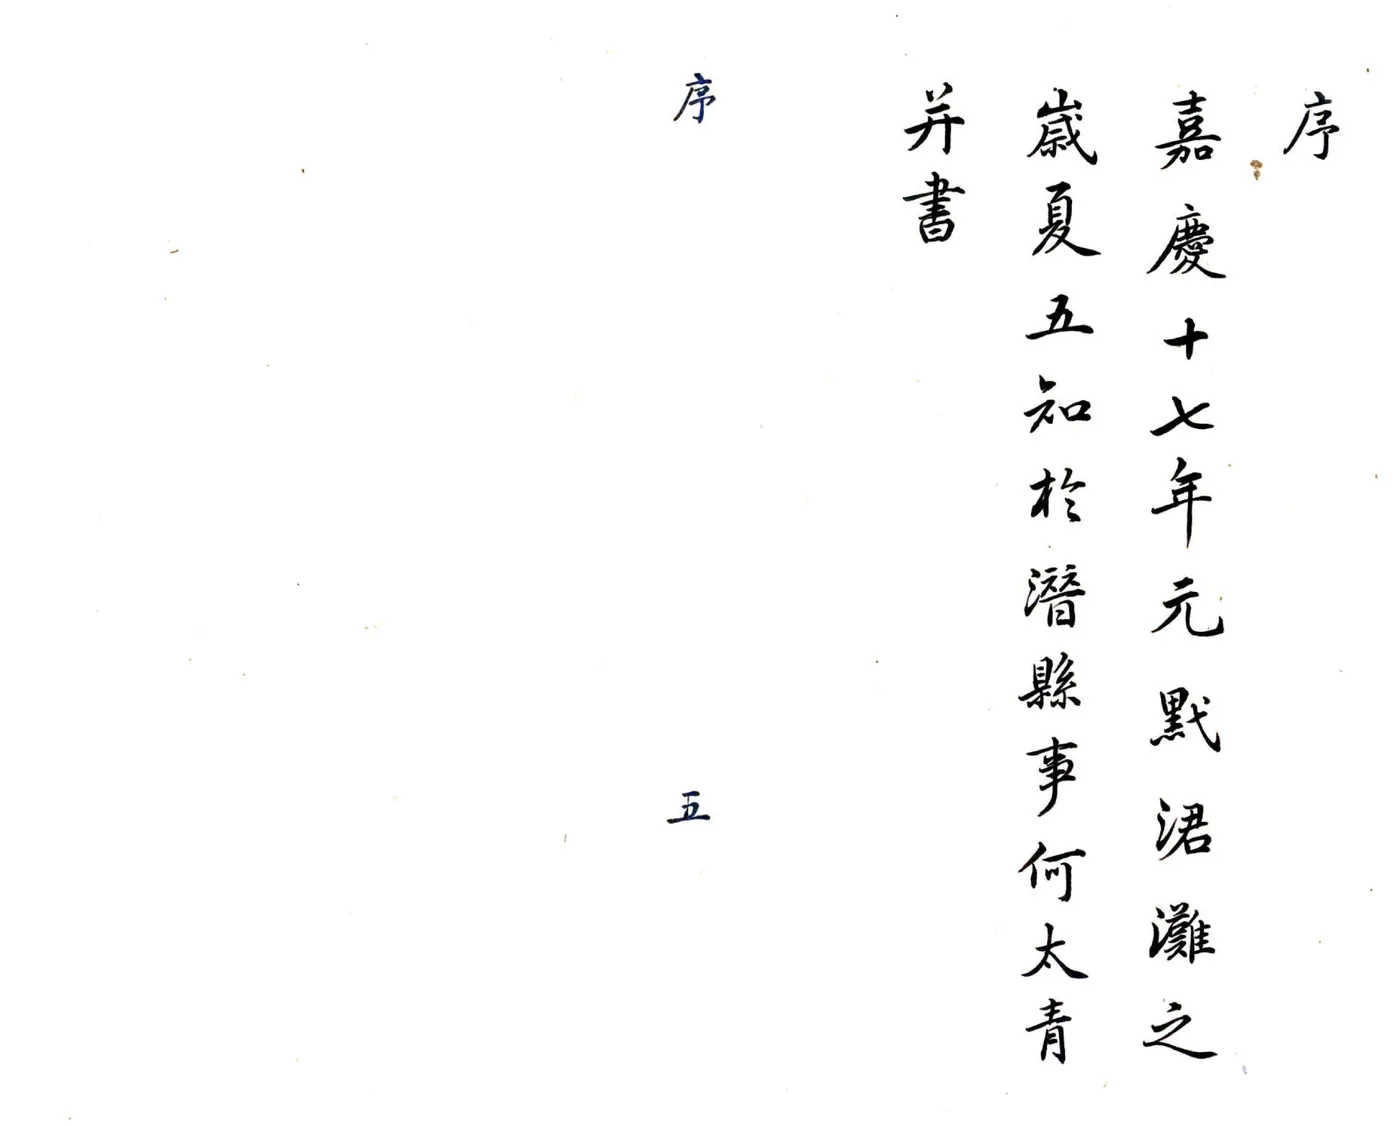 序
嘉慶十七年元黓涒灘之
歲夏五知於潛縣事何太青
并書
序
五